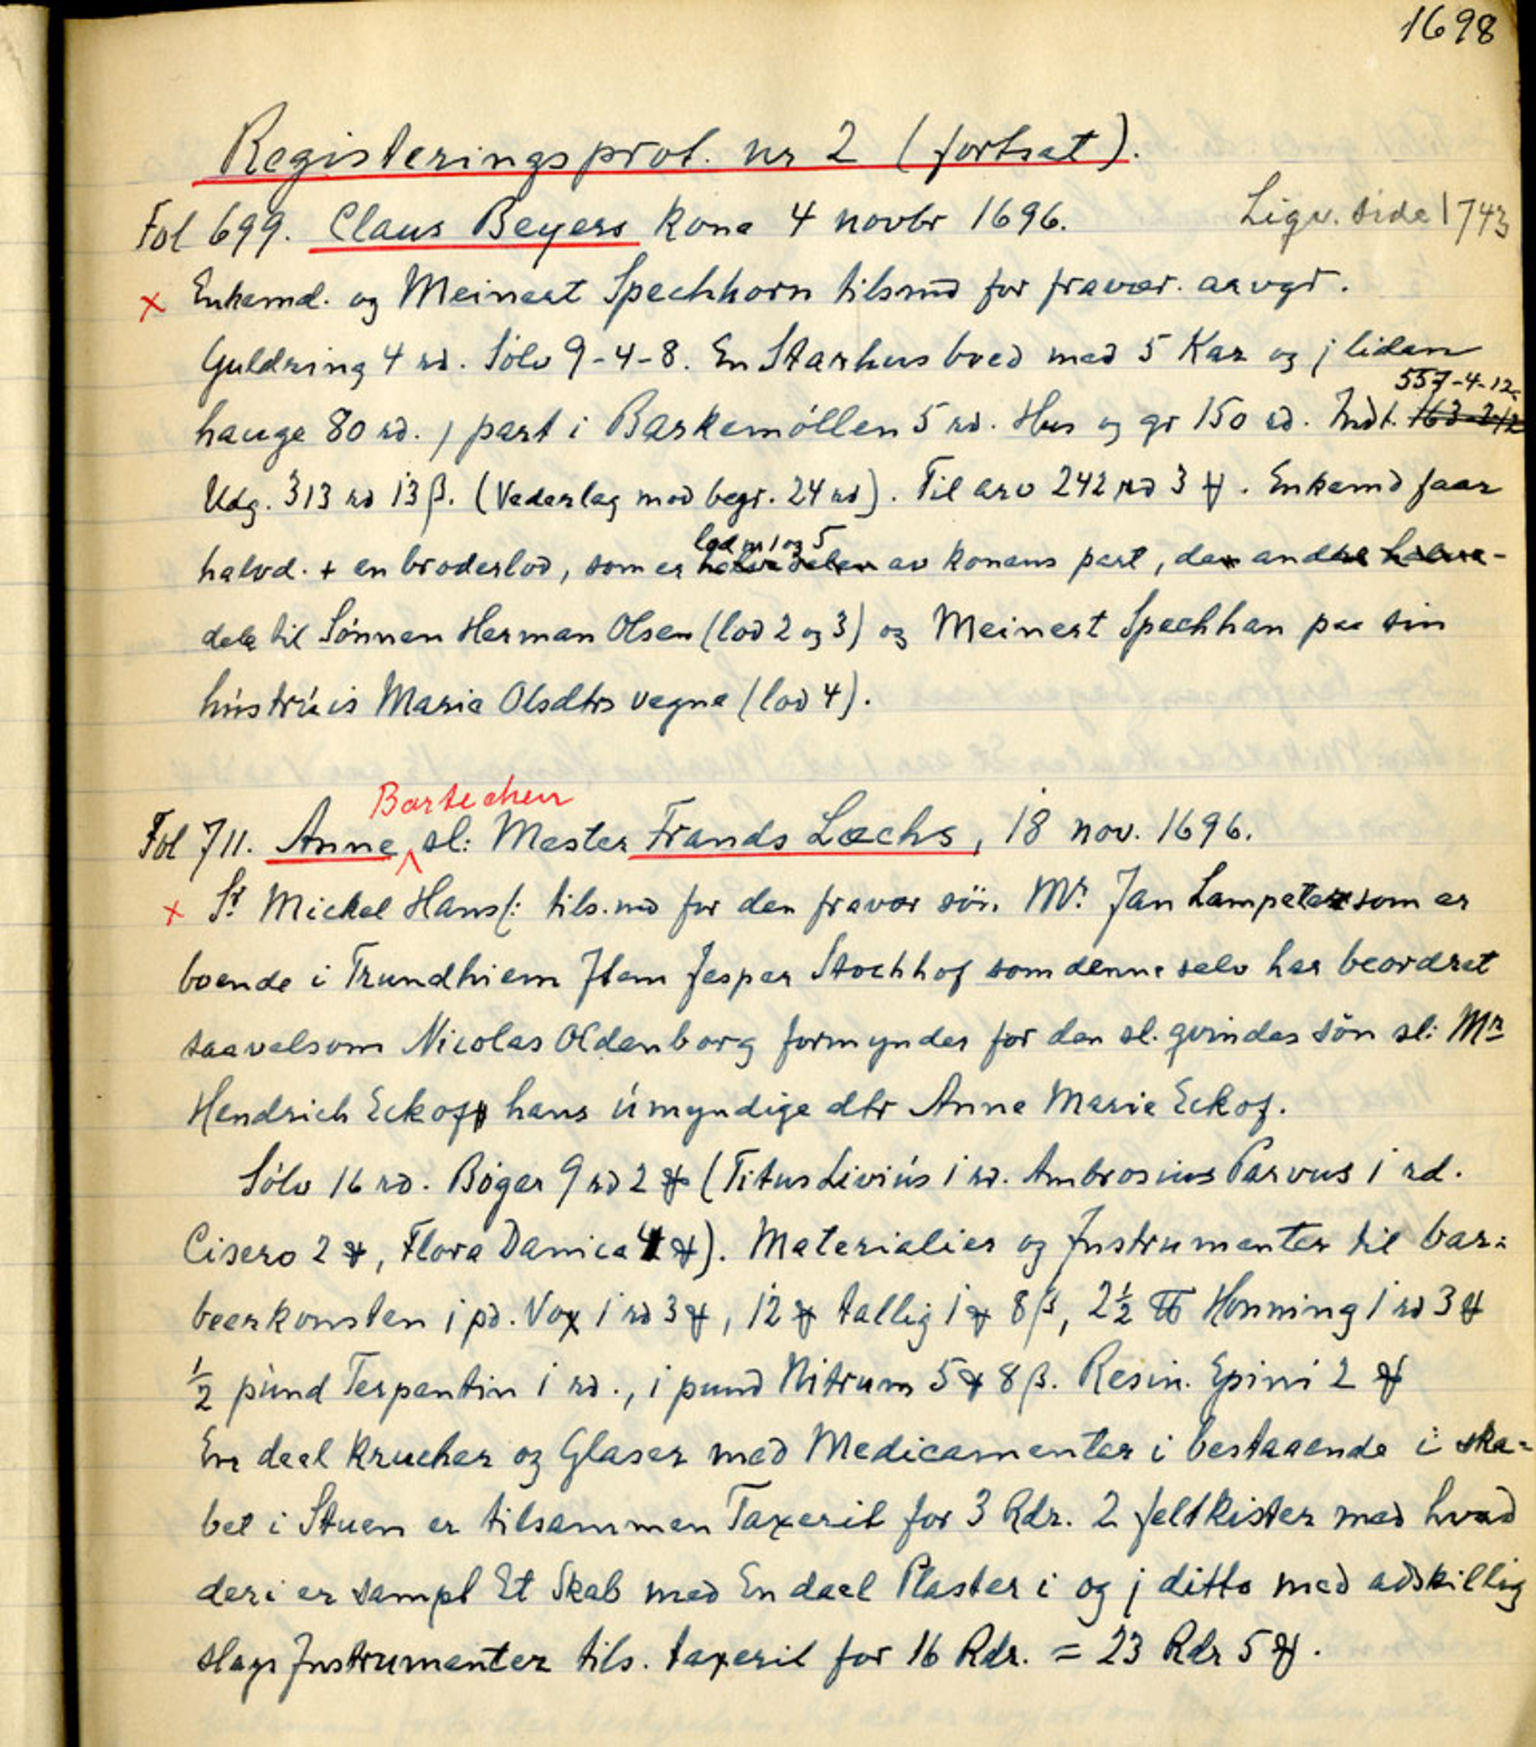 1698
Registeringsprot. nr 2 (fortsat).
Fol 699. Claus Beyers kone 4 novbr 1696. Liqv. side 1743
x Enkemd. og Meinert Spechhorn tilsmd for fravær. arvgr.
Guldring 4 rd. Sölv 9-4-8. En Starhus boed med 5 Kar og j liden
557-4-12
hauge 80 rd. j part i Barkemöllen 5 rd. Hus og gr 150 rd. Indt. 163-2-12
Udg. 313 rd 13 β. (Vederlag mod begr. 24 rd). Til arv 242 rd 3 ₰. Enkemd faar
lod nr 1 og 5
halvd. + en broderlod, som er halvdelen av konens part, den andre halve-
dele til Sönnen Herman Olsen (lod 2 og 3) og Meinert Spechhan paa sin
hústrúis Marie Olsdtrs vegne (lod 4).
Bartechen
Fol 711. Anne sl: Mester Frands Læchs, 18 nov. 1696.
x Sr. Mickel Hansf: tils.md for den fravær sön. Mr. Jan Lampeter som er
boende i Trundhiem Item Jesper Stochhof som denne selv har beordret
saavelsom Nicolas Oldenborg formynder for den sl. qvindes sön sl: Mr
Hendrich Eckof hans úmyndige dtr Anne Marie Eckof.
Sölv 16 rd. Böger 9 rd 2 ₰ (Titus Liviús 1 rd. Ambrosius Parvus 1 rd.
Cisero 2 ₰, Flora Danica 4 ₰). Materialier og Instrumenter til bar=
beerkonsten i pd. Vox 1 rd 3 ₰, 12 ₰ tallig 1 ₰ 8 β, 2½ ℔ Honning 1 rd 3 ₰
½ púnd Terpentin 1 rd., i pund Nitrum 5 ₰ 8 β. Resin. Epini 2 ₰
En deel krucher og Glaser med Medicamenter i bestaaende i ska=
bet i Stuen er tilsammen Taxerit for 3 Rdr. 2 feltkister med hvad
deri er sampt Et Skab med En deel Plaster i og j ditto med adskillig
slags Instrumenter tils. taxerit for 16 Rdr. = 23 Rdr 5 ₰.